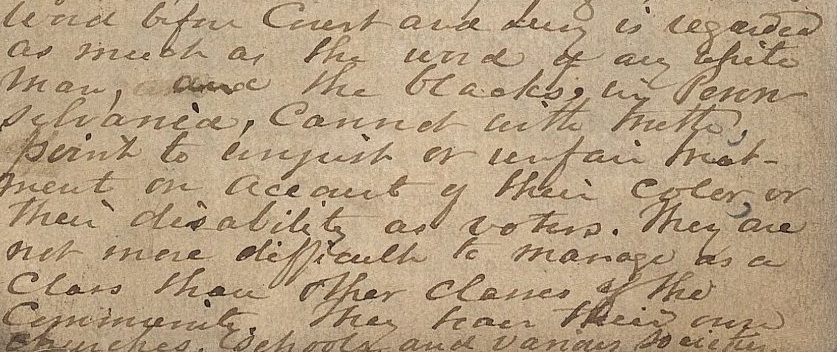 word before Court and Jury is regarded
as much as the word of any white
man, and the blacks in Penn
sylvania, Cannot with truth,
point to unjust or unfair treat-
ment on account of their color, or
their disability as voters. They are
not more difficult to manage as a
Class than other classes of the
Community. They have their own
churches, Schools and various Society